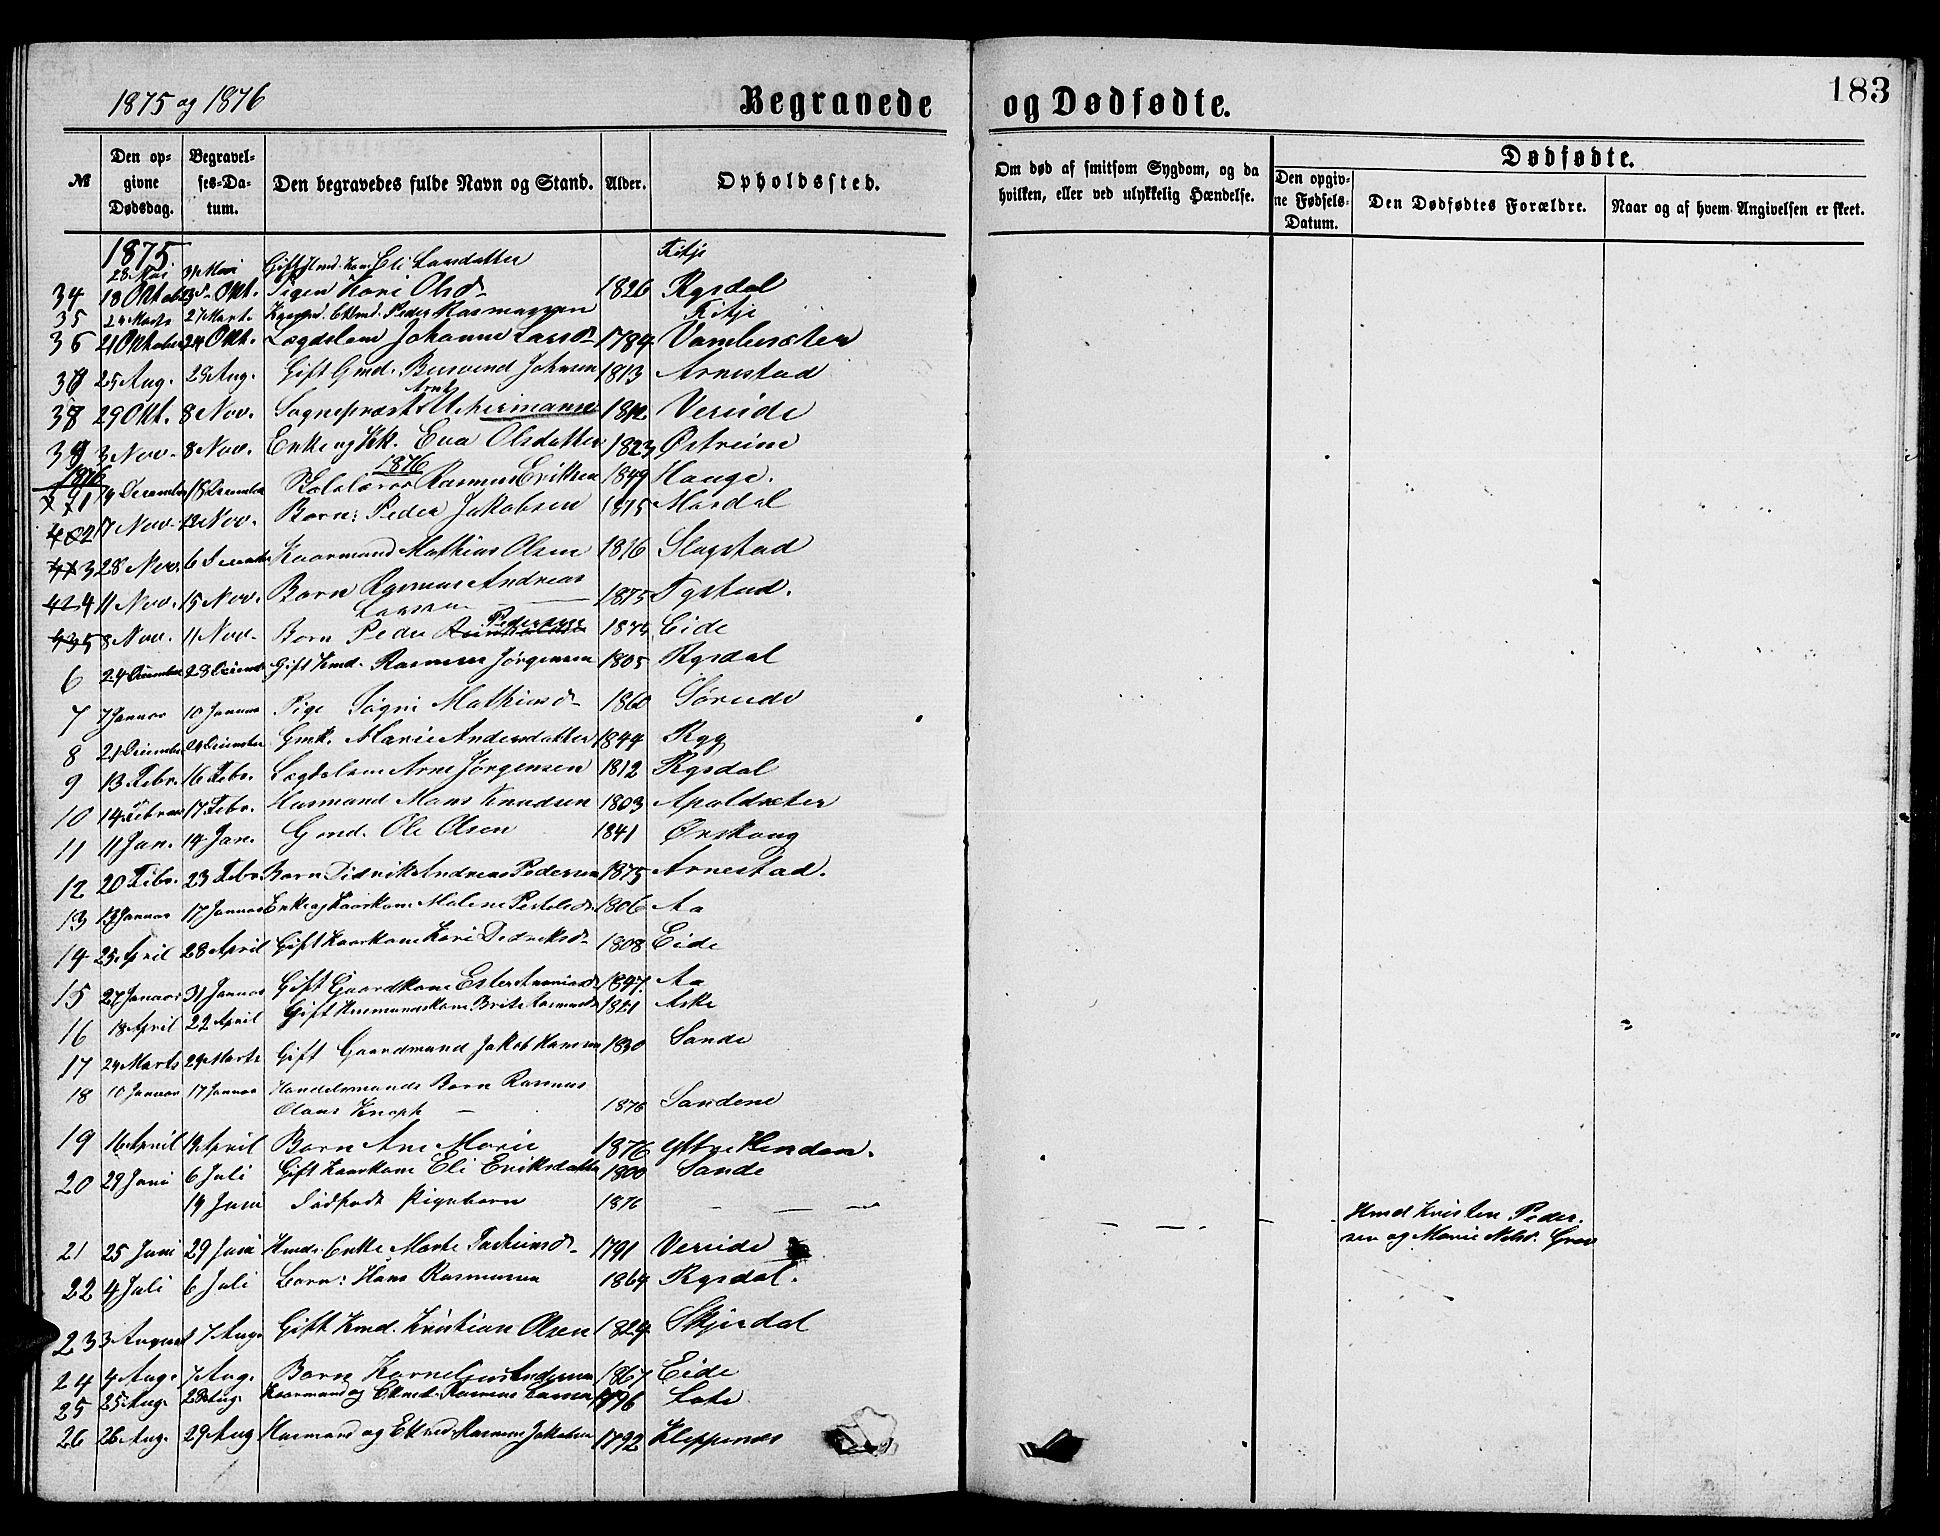 1875 og 1876
Begravede og Dødfødte.
183
№
Den opgivne Dødsdag.
Begravelses-Datum.
Den begravedes fulde Navn og Stand.
Alder.
Opholdssted.
Om død af smitsom Sygdom, og da hvilken, eller ved ulykkelig Hændelse.
Dødfødte.
Den opgivne Fødsels-Datum.
Den Dødfødtes Forældre.
Naar og af hvem Angivelsen er skeet.
1875
28 Mai 31 Mai Gift Eli Larsdatter Fitje
34 18 Oktob Okt. Pigen Kari Olsd 1826 Rysdal
35 24 Marts 27 Mart. Peder Rasmussen Fitje
36 21 Oktober 24 Okt. Lægdslem Johanne Larsd 1784
25 Aug. 29 Aug. Gift Gmd. Johnsen 1813 Arnestad
29 Okt. 8 Nov. Sognepræst 1812 Vereide
39 3 Nov. 8 Nov. Enke og Kk. Eva Olsdatter 1823 Østreim
1876
1876
1 14 December 18 December Skolelærer Rasmus Eriksen 1849 Hauge.
2 17 Nov. Nov. Barn: Peder Jakobsen 1875 Mardal
3 28 Nov. 6 Kaarmand Mathias Olsen 1816 Slagstad
4 11 Nov. 15 Nov. Barn Rasmus Andreas Larsen 1875 Tystad.
5 8 Nov. 11 Nov. Barn Peder Pedersen 1874 Eide
6 24 December 28 Decemb Gift Kmd. Rasmus Jørgensen 1805 Rysdal
7 7 Januar 10 Januar Pige Søgni Mathiasd 1860 Søreide
8 21 December 24 December Gmk. Marie Andersdatter 1844 Ryg
9 13 Febr. 16 Febr. Lægdslem Arne Jørgensen 1812 Rysdal
10 14 Februar 17 Febr. Husmand Mons Knudsen 1803 Apaldsæter
11 11 Jan. 14 Jan. Gmd. Ole Olsen 1841 Ørskoug
12 20 Febr. 23 Febr. Barn Didrik Andreas Pedersen 1875 Arnestad.
13 13 Januar 17 Januar Enke og Kaarkone Malene 1806 Aa
14 25 April 28 April Gift Kaarkone Kari Dedriksd 1808 Eide
15 27 Januar 31 Januar Gift Gaardkone Ester 1847 Aa
16 18 April 22 April Gift Husmandskone Brite Rasmusd 1821 Aske
17 24 Marts 29 Marts Gift Gaardmand Jakob Hansen 1830 Sande
18 10 Januar 17 Januar Handelsmands Barn Rasmus
Olaus Knoph 1876 Sandene
19 16 April 19 April Barn Ane Marie 1876 Ytre Hendén.
20 29 Juni 6 Juli Gift Kaarkone Eli Eriksdatter 1800 Sande
19 Juni Dødfødt Pigebarn 1876 Hmd Kristen Peder-
sen og Marie Nilsd.
21 25 Juni 29 Juni Hmds Enke Marte 1791 Vereide
22 4 Juli 6 Juli Barn: Hans Rasmussen 1864 Rysdal.
23 3 August 7 Aug. Gift Kmd. Kristian Olsen 1824 Skjerdal
24 4 Aug. 7 Aug. Barn Kornelius Andersen 1867 Eide
25 25 Aug. 28 Aug. Kaarmand og Ekmd. Rasmus Larsen 1796 Lote
26 26 Aug. 29 Aug Husmand og Ekmd Rasmus Jakobsen 1792 Kleppenes